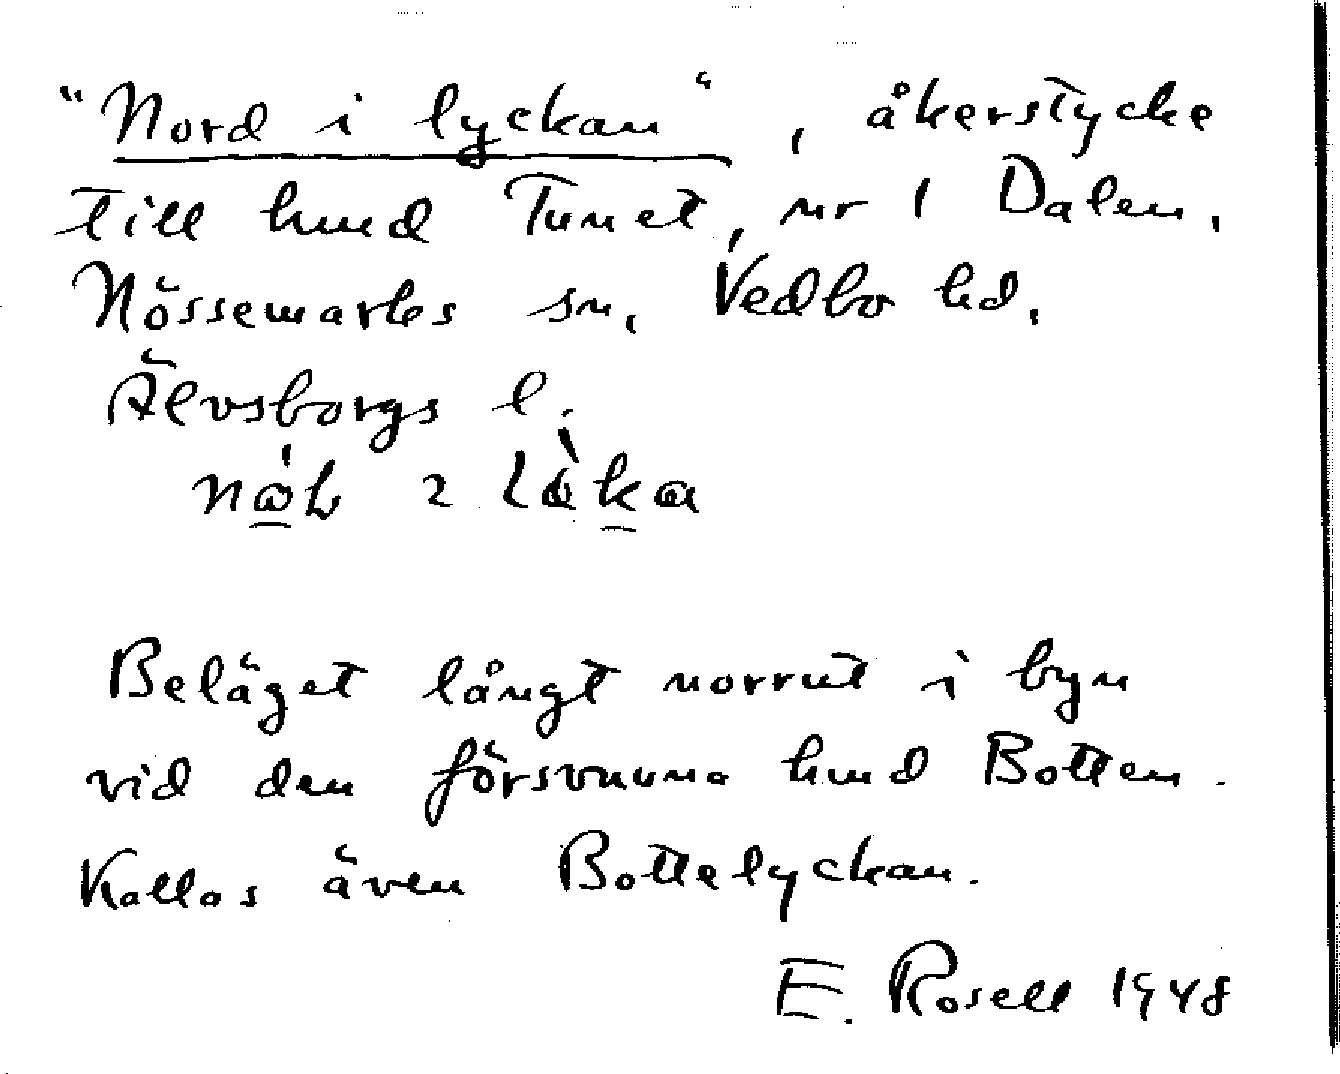 "Nord i lyckan", åkerstycke
till hmd Tunet, nr 1 Dalen,
Nössemarks sn, Vedbo hd,
Älvsborgs l.
Beläget långt norrut i byn
vid den försvunna hmd Botten.
Kallas även Bottelyckan.
E. Rosell 1948